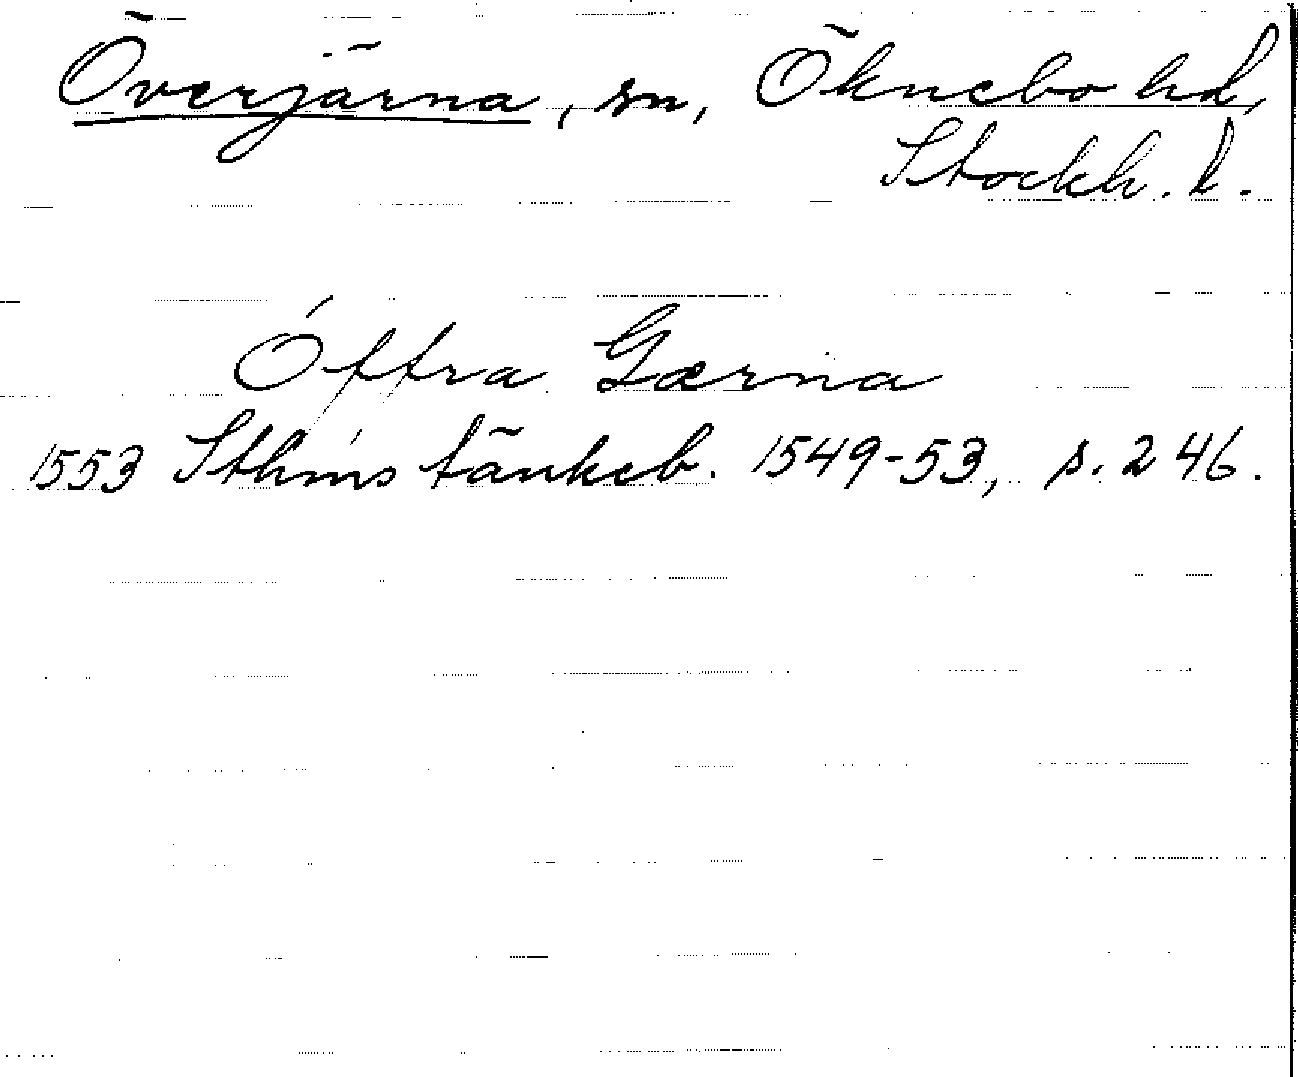 Överjärna, sn, Öknebo hd,
Stockh. l.
Óffra Gærna
1553 Sthms tänkeb. 1549-53, s. 246.